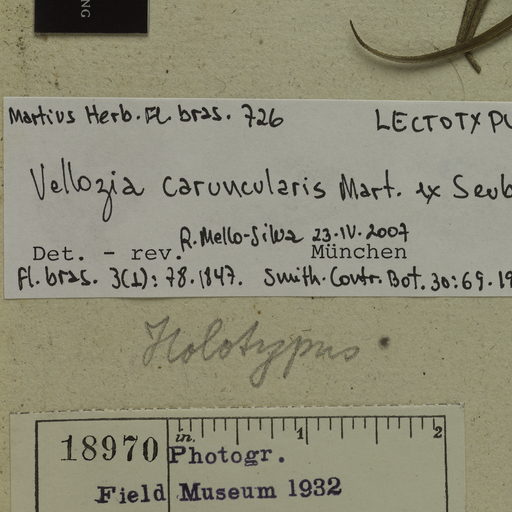 NG
Martius Herb. Fl. bras. 726 LECTOTYPU
Vellozia caruncularis Mart. ex Seub
R. Mello-Silva 23.IV.2007
Det. - rev. München
Fl. bras. 3(1): 78. 1847. Smith. Contr. Bot. 30: 69. 19
Holotypus
in. 1 2
18970 Photogr.
Field Museum 1932